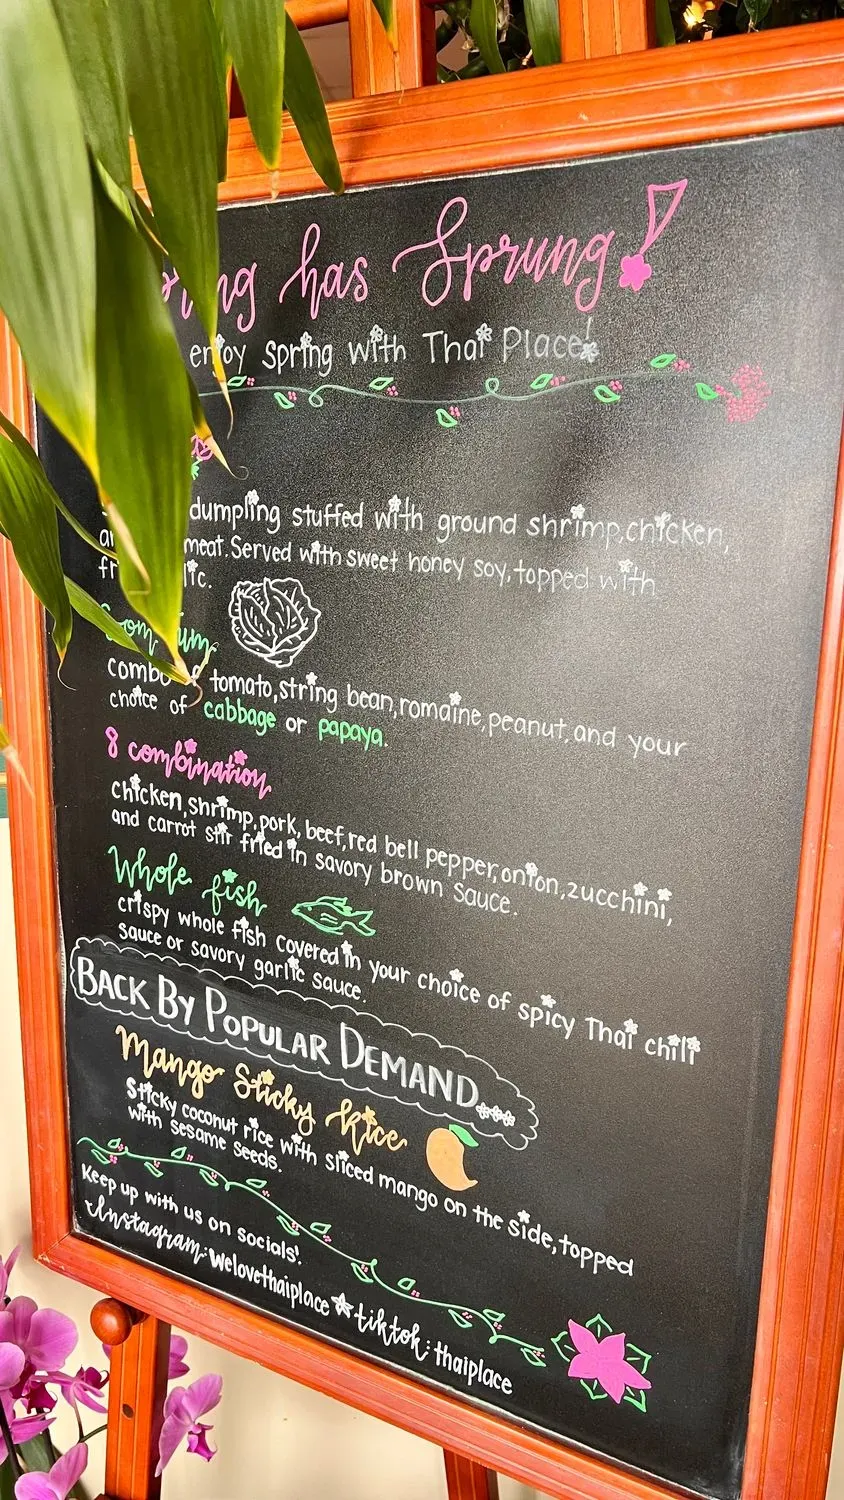 has Sprung!
enjoy Spring with Thai Place!
dumpling stuffed with ground shrimp, chicken,
meat. Served with sweet honey soy, topped with
tomato, string bean, romaine, peanut, and your
choice of cabbage or papaya.
8 combination
chicken, shrimp, pork, beef, red bell pepper, onion, zucchini,
and carrot stir fried in savory brown sauce.
Whole fish
crispy whole fish covered in your choice of spicy Thai chili
sauce or savory garlic sauce.
BACK BY POPULAR DEMAND...
Mango Sticky Rice
Sticky coconut rice with sliced mango on the side, topped
with sesame seeds.
Keep up with us on socials!
Instagram: welovethaiplace ☆ tiktok: thaiplace